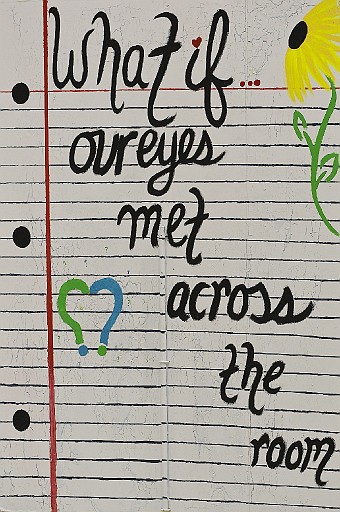 What if...
our eyes
met
across
the
room